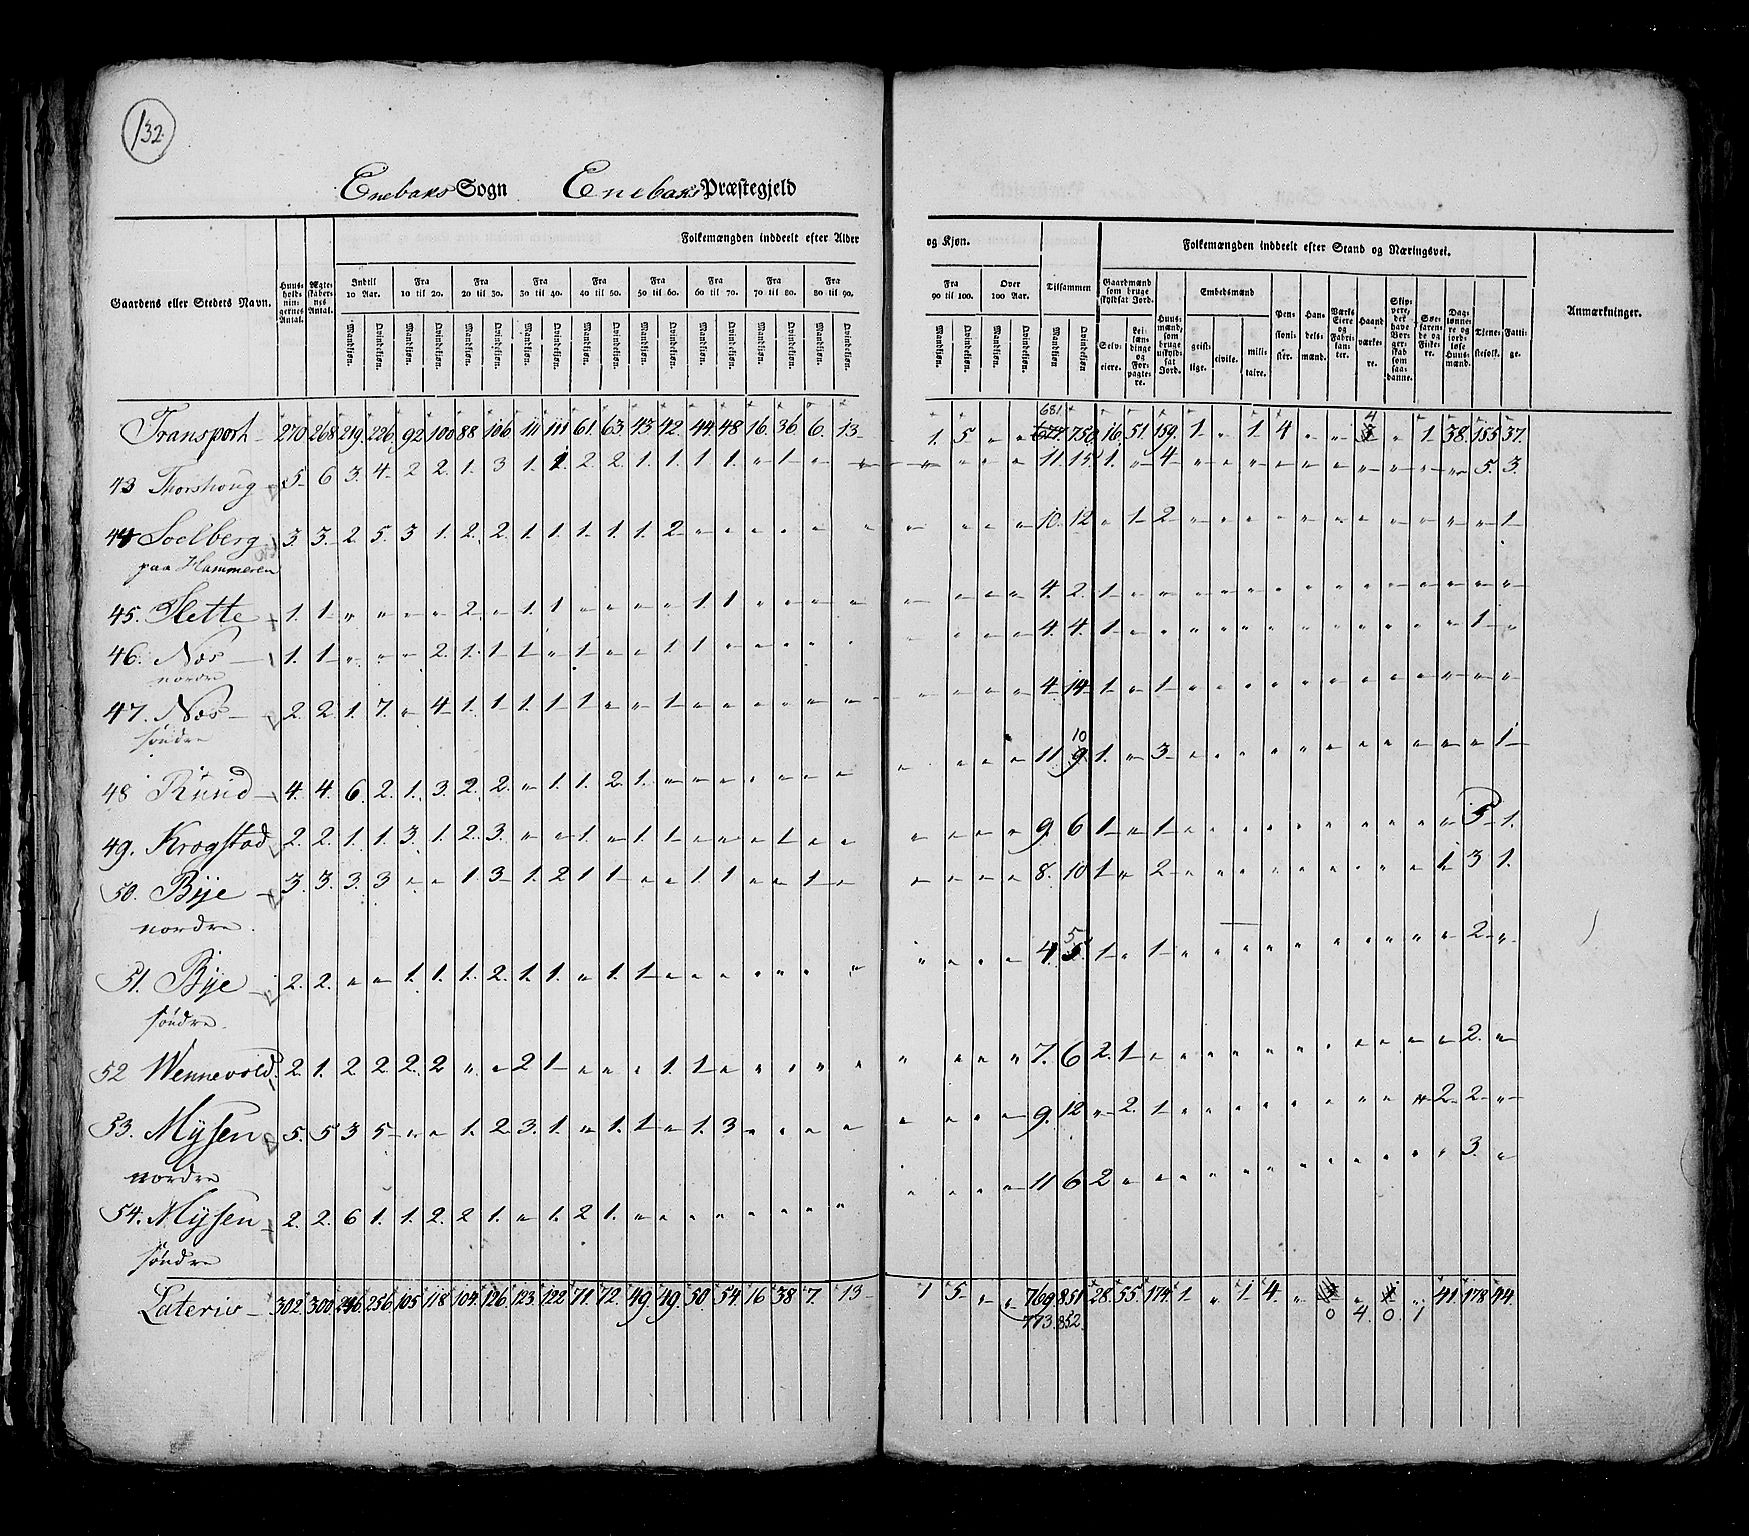 132.
Enebaks Sogn Enebaks Præstegjeld
Folkemængden inddeelt efter Alder og Kjøn. Folkemængden inddeelt efter Stand og Næringsvei.
Gaardens eller Stedets Navn. Huusholdningernes Antal. Ægteskabernes Antal. Indtil 10 Aar. Fra 10 til 20. Fra 20 til 30. Fra 30 til 40. Fra 40 til 50. Fra 50 til 60. Fra 60 til 70. Fra 70 til 80. Fra 80 til 90. Fra 90 til 100. Over 100 Aar. Tilsammen Gaardmænd som bruge skyldsat Jord. Huusmænd, som bruge uskyldsat Jord. Embedsmænd Pensionister. Handelsmænd. Værks Eiere og Fabrikanter. Haandværkere. Skippere, der have Borgerskab som saadanne. Søefarende og Fiskere. Dagslønnere og jordløse Huusmænd. Tjenestefolk. Fattige. Anmærkninger.
Mandkjøn. Qvindekjøn. Mandkjøn. Qvindekjøn. Mandkjøn. Qvindekjøn. Mandkjøn. Qvindekjøn. Mandkjøn. Qvindekjøn. Mandkjøn. Qvindekjøn. Mandkjøn. Qvindekjøn. Mandkjøn. Qvindekjøn. Mandkjøn. Qvindekjøn. Mandkjøn. Qvindekjøn. Mandkjøn. Qvindekjøn. Mandkjøn Qvindekjøn Selveiere. Leilændinge og Forpagtere. geistlige. civile. militaire.
Transport 270 268 219. 226. 92 100 88 106 111 111 61. 63. 43 42. 44. 48 16. 36. 6. 13. 1. 5 „ „ 681. 677. 750. 16. 51. 159. 1. „ 1. 4 „ „ 4 3 „ 1. 38. 155 37.
43 Thorshoug 5 6 3. 4. 2 2. 1. 3 1. 1. 2 2. 1. 1. 1 1. „ 1. „ „ „ „ „ „ 11. 15. 1. „ 4 „ „ „ „ „ „ „ „ „ „ 5. 3.
44 Soelberg paa Hammeren 3 3. 2. 5. 3 1. 2. 2. 1. 1. 1. 1. 1. 2 „ „ „ „ „ „ „ „ „ „ 10. 12 „ 1 2 „ „ „ „ „ „ „ „ „ „ „ 1
45. Slette 1. 1 „ „ „ „ 2 „ 1. 1 „ „ „ „ 1. 1 „ „ „ „ „ „ „ „ 4. 2. 1 „ „ „ „ „ „ „ „ „ „ „ „ „ „
46. Næs nordre 1. 1 „ „ „ 2. 1. 1 1. „ 1 „ „ 1 1 „ „ „ „ „ „ „ „ „ 4. 4. 1 „ „ „ „ „ „ „ „ „ „ „ „ 1 „
47. Næs søndre 2. 2. 1. 7. „ 4 1. 1. 1. 1. 1 „ „ 1 „ „ „ „ „ „ „ „ „ „ 4. 14 1 „ 1 „ „ „ „ „ „ „ „ „ „ „ „
48 Ruud 4. 4. 6. 2. 1. 3. 2. 2. „ 1. 1. 2. 1. „ „ „ „ „ „ „ „ „ „ „ 11. 10 9. 1. „ 3 „ „ „ „ „ „ „ „ „ „ „ 1
49. Krogstad 2. 2. 1. 1. 3. 1. 2. 3. „ „ 1. „ 1. 1 „ „ „ 1 „ „ „ „ „ „ 9. 6 1 „ 1 „ „ „ „ „ „ „ „ „ „ 5 1.
50. Bye nordre. 3. 3. 3. 3 „ „ 1. 3 1. 2 1. 1 „ „ 1. 1 „ „ 1 „ „ „ „ „ 8. 10 1 „ 2 „ „ „ „ „ „ „ „ „ 1. 3. 1.
51. Bye søndre. 2. 2. „ „ 1. 1. 1. 2. 1. 1. „ 1. 1 „ „ „ „ „ „ „ „ „ „ „ 4. 5 1 „ 1 „ „ „ „ „ „ „ „ „ „ 2 „
52 Wennevold. 2. 1. 2 2. 2. 2 „ „ 2 1 „ „ „ 1. 1 „ „ „ „ „ „ „ „ „ 7. 6 2. 1 „ „ „ „ „ „ „ „ „ „ „ 2. „
53. Mysen nordre 5. 5 3 5 „ „ 1. 2. 3. 1. „ 1. 1 „ 1. 3 „ „ „ „ „ „ „ „ 9. 12 „ 2. 1 „ „ „ „ „ „ „ „ „ 2 2. „
54. Mysen søndre 2. 2. 6 1. 1. 2. 2 1. „ 1. 2 1. „ „ „ „ „ „ „ „ „ „ „ „ 11 6 2 „ „ „ „ „ „ „ „ „ „ „ „ 3. „
Lateris 302. 300 246. 256. 105 118 104. 126. 123. 122 71. 72. 49 49. 50 54. 16 38. 7. 13 1 5 „ „ 769 851. 28. 55. 174. 1 „ 1 4. „ „ „ 41. 178. 44.
773. 852. 0 4. 0. 1